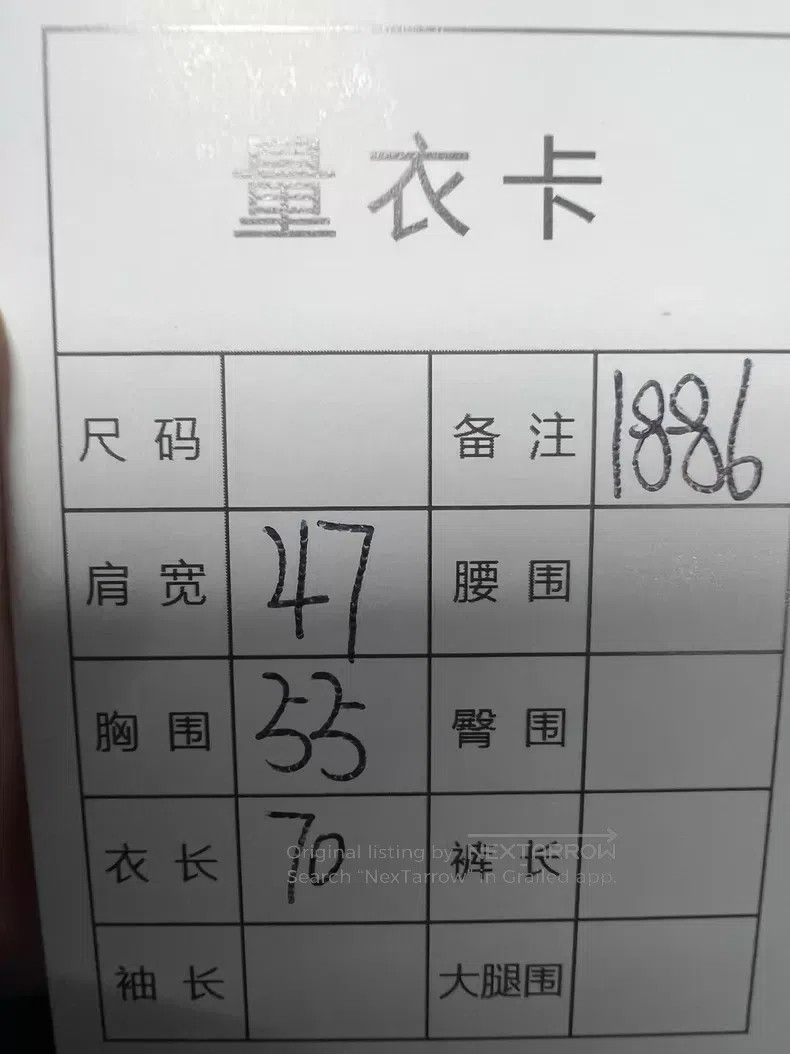 量衣卡
尺码 备注 1886
肩宽 47 腰围
胸围 55 臀围
衣长 70 裤长
Original listing by NEXTARROW
Search “NexTarrow” in Grailed app.
袖长 大腿围